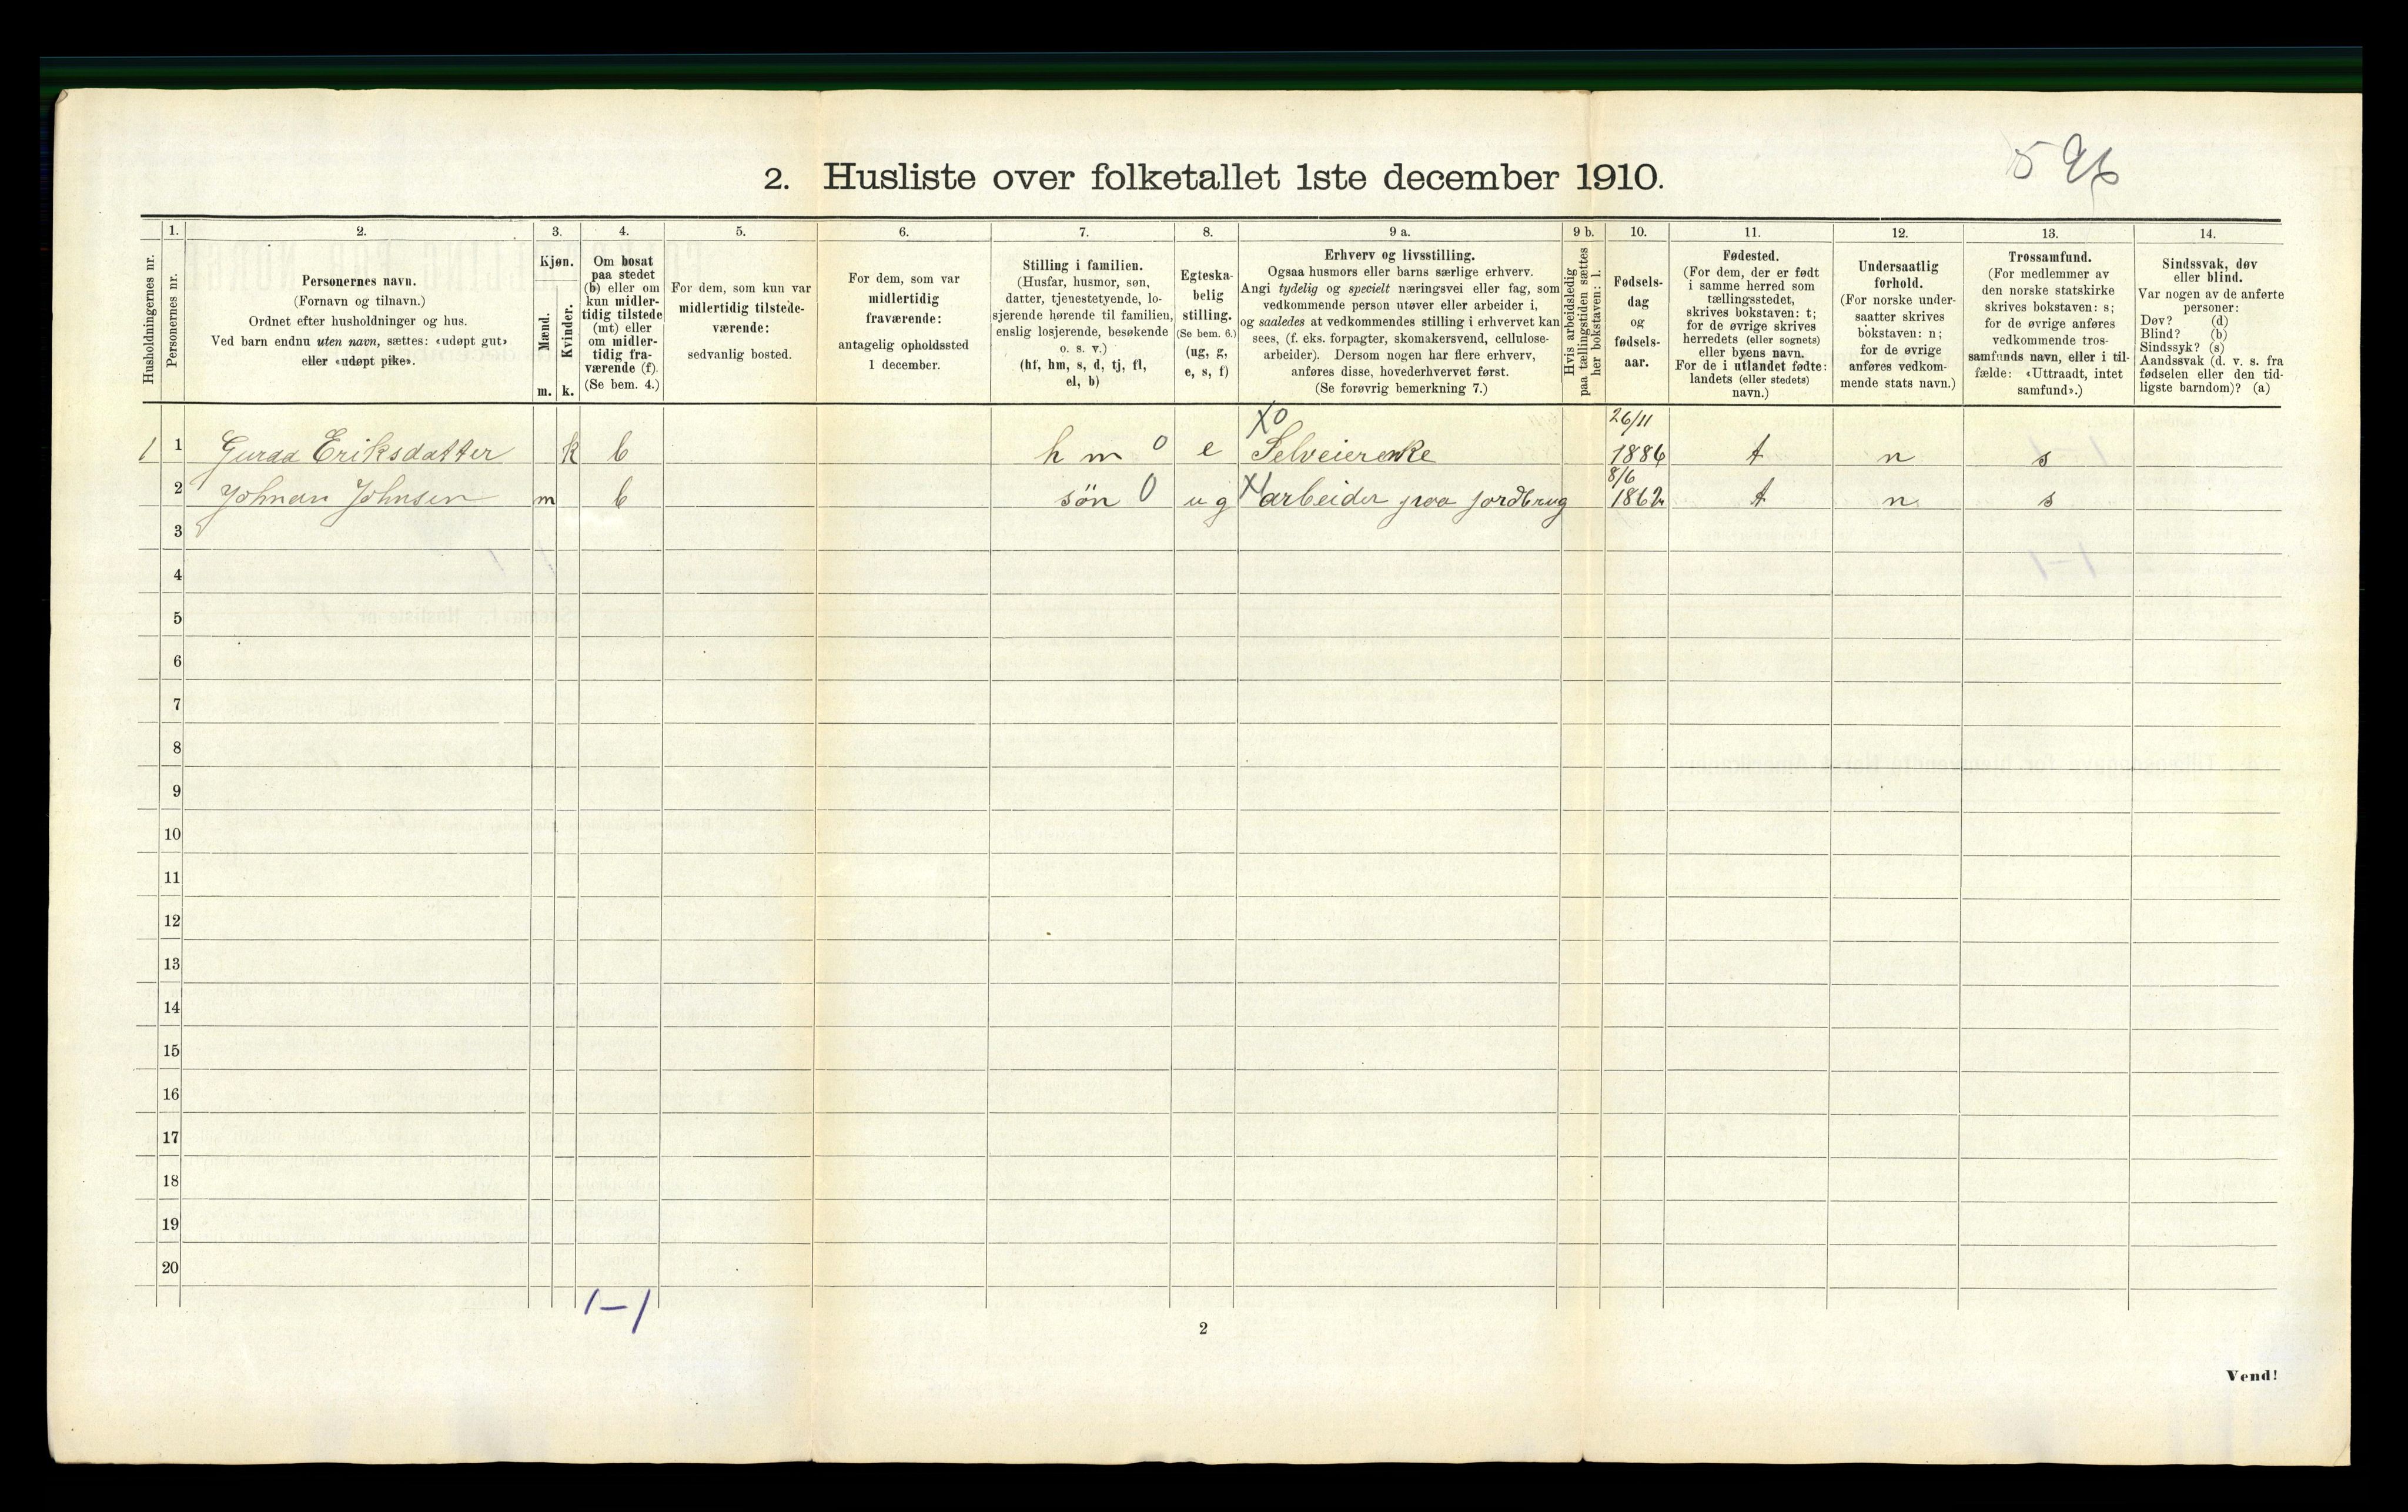 596
2. Husliste over folketallet 1ste december 1910.
Husholdningernes nr.
1.
Personernes nr.
2.
Personernes navn.
(Fornavn og tilnavn.)
Ordnet efter husholdninger og hus.
Ved barn endnu uten navn, sættes: «udøpt gut»
eller «udøpt pike».
3.
Kjøn.
Mænd.
Kvinder.
m. k.
4.
Om bosat
paa stedet
(b) eller om
kun midler-
tidig tilstede
(mt) eller
om midler-
tidig fra-
værende (f).
(Se bem. 4.)
5.
For dem, som kun var
midlertidig tilstede-
værende:
sedvanlig bosted.
6.
For dem, som var
midlertidig
fraværende:
antagelig opholdssted
1 december.
7.
Stilling i familien.
(Husfar, husmor, søn,
datter, tjenestetyende, lo-
sjerende hørende til familien,
enslig losjerende, besøkende
o. s. v.)
(hf, hm, s, d, tj, fl,
el, b)
8.
Egteska-
belig
stilling.
(Se bem. 6.)
(ug, g,
e, s, f)
9 a.
Erhverv og livsstilling.
Ogsaa husmors eller barns særlige erhverv.
Angi tydelig og specielt næringsvei eller fag, som
vedkommende person utøver eller arbeider i,
og saaledes at vedkommendes stilling i erhvervet kan
sees, (f. eks. forpagter, skomakersvend, cellulose-
arbeider). Dersom nogen har flere erhverv,
anføres disse, hovederhvervet først.
(Se forøvrig bemerkning 7.)
9 b.
Hvis arbeidsledig
paa tællingstiden sættes
her bokstaven: l.
10.
Fødsels-
dag
og
fødsels-
aar.
11.
Fødested.
(For dem, der er født
i samme herred som
tællingsstedet,
skrives bokstaven: t;
for de øvrige skrives
herredets (eller sognets)
eller byens navn.
For de i utlandet fødte:
landets (eller stedets)
navn.)
12.
Undersaatlig
forhold.
(For norske under-
saatter skrives
bokstaven: n;
for de øvrige
anføres vedkom-
mende stats navn.)
13.
Trossamfund.
(For medlemmer av
den norske statskirke
skrives bokstaven: s;
for de øvrige anføres
vedkommende tros-
samfunds navn, eller i til-
fælde: «Uttraadt, intet
samfund».)
14.
Sindssvak, døv
eller blind.
Var nogen av de anførte
personer:
Døv? (d)
Blind? (b)
Sindssyk? (s)
Aandssvak (d. v. s. fra
fødselen eller den tid-
ligste barndom)? (a)
X0 26/11
1 1 Eriksdatter k b h m 0 e Selveierenke t n s
8/6
2 Johnsen m b søn 0 ug X arbeider paa jordbrug 1862 t n s
3
4
5
6
7
8
9
10
11
12
13
14
15
16
17
18
19
20
1-1
2
Vend!